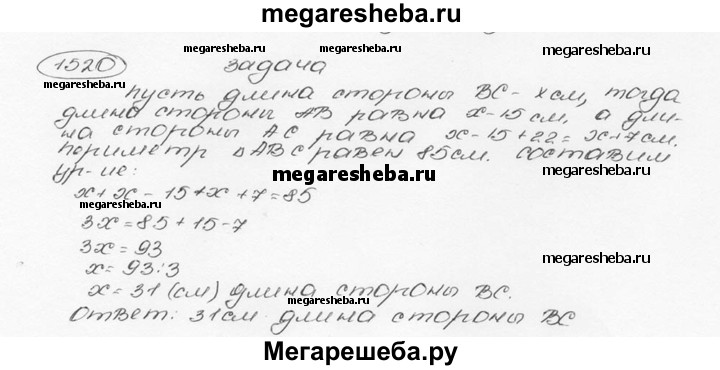 megaresheba.ru
1520 megaresheba.ru задача megaresheba.ru megaresheba.ru
пусть длина стороны BC - x см, тогда
длина стороны AB равна x-15 см, а дли-
на стороны AC равна x-15+22=x+7 см.
периметр △ABC равен 85 см. составим
ур-ие: megaresheba.ru
x+x-15+x+7=85
megaresheba.ru
3x=85+15-7
3x=93 megaresheba.ru
x=93:3
x=31 (см) длина стороны BC.
megaresheba.ru megaresheba.ru
Ответ: 31 см длина стороны BC
Мегарешеба.ру